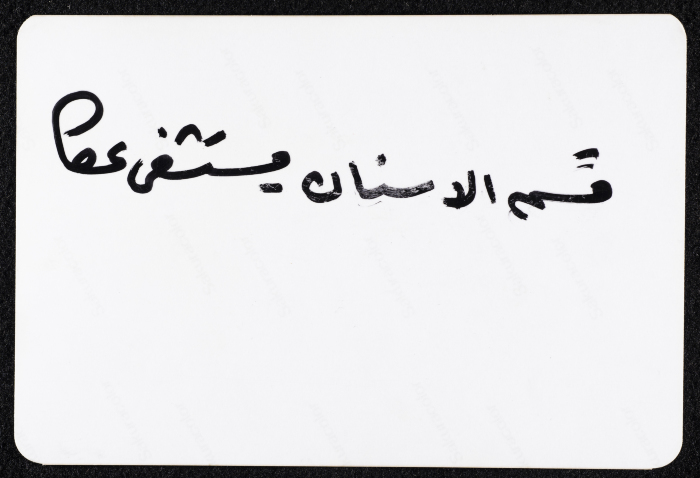 قسم الاسنان مستشفى